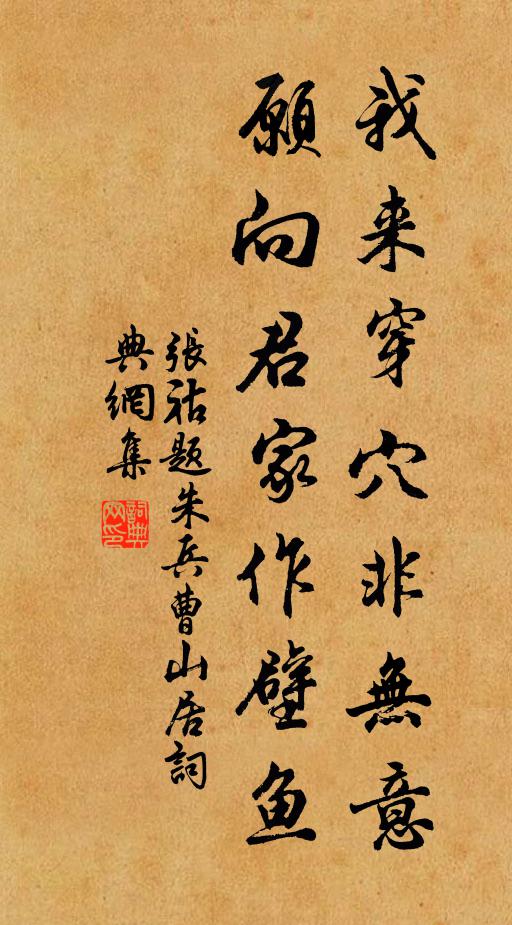 我来穿穴非無意
願向君家作壁鱼
張祜题朱兵曹山居詞
典網集
詞典
网印